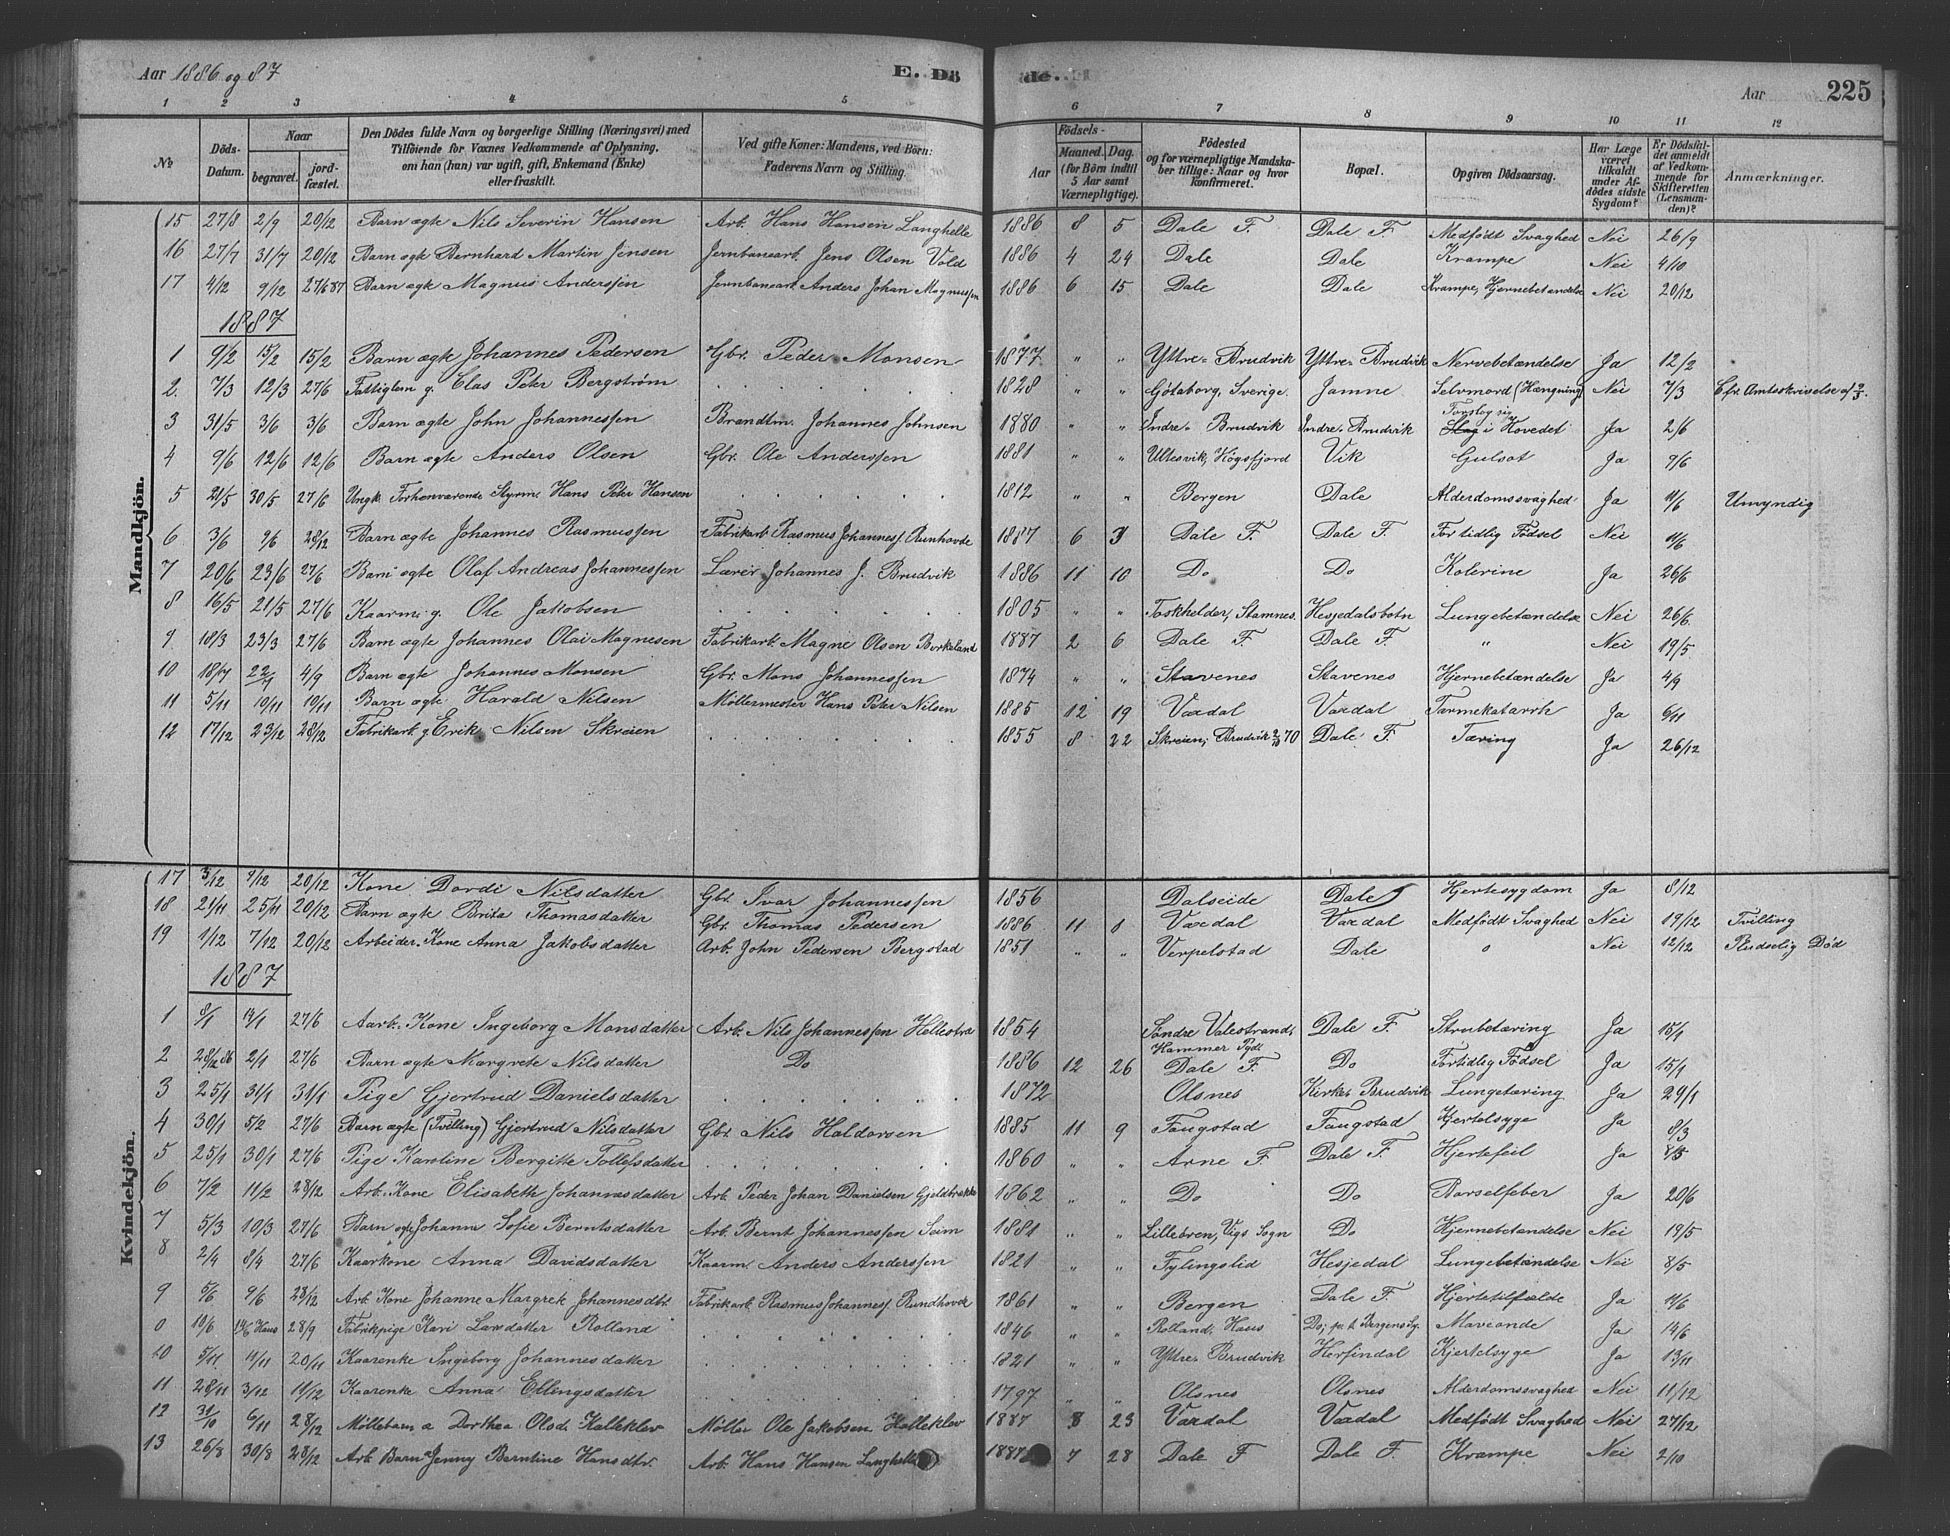 Aar 1886 og 87 E. Döde. Aar 225
1 2 3 4 5 6 7 8 9 10 11 12
№ Döds-Datum. Naar begravet. jordfæstet. Den Dödes fulde Navn og borgerlige Stilling (Næringsvei) med Tilföiende for Voxnes Vedkommende af Oplysning, om han (hun) var ugift, gift, Enkemand (Enke) eller fraskilt. Ved gifte Koner: Mandens, ved Börn: Faderens Navn og Stilling. Aar Födsels- Maaned. Dag. (for Börn indtil 5 Aar samt Værnepligtige). Födested og for værnepligtige Mandskaber tillige: Naar og hvor konfirmeret. Bopæl. Opgiven Dödsaarsag. Har Læge været tilkaldt under Afdödes sidste Sygdom? Er Dödsfaldet anmeldt af Vedkommende for Skifteretten (Lensmanden)? Anmærkninger.
Mandkjön.
15 27/8 2/9 20/12 Barn ægte Nils Severin Hansen Arb. Hans Hansen Langhelle 1886 8 5 Dale F. Dale F. Medfödt Svaghed Nei 26/9
16 27/7 31/7 20/12 Barn ægte Bernhard Martin Jensen Jernbanearb. Jens Olsen Vold 1886 4 24 Dale Dale Krampe Nei 4/10
17 4/12 9/12 27/6 87 Barn ægte Magnus Anderssen Jernbanearb. Anders Johan Magnussen 1886 6 15 Dale Dale Krampe, Hjernebetændelse Nei 20/12
1887
1 9/2 15/2 15/2 Barn ægte Johannes Pedersen Gbr. Peder Monsen 1877 " " Yttre-Brudvik Yttre-Brudvik Nervebetændelse Ja 12/2
2. 7/3 12/3 27/6 Fattiglem g. Clas Peter Bergström 1828 " " Götaborg, Sverige. Jamne Selvmord (Hængning) Nei 7/3 Cfr. Amtsskrivelse af 2/5.
3 31/5 3/6 3/6 Barn ægte John Johannessen Brandtm. Johannes Johnsen 1880 " " Indre-Brudvik Indre-Brudvik Forslog sig i Hovedet Ja 2/6
4 9/6 12/6 12/6 Barn ægte Anders Olsen Gbr. Ole Anderssen 1881 " " Ullesvik, Högsfjord Vik Gulsot Ja 9/6
5 21/5 30/5 27/6 Ungk. Forhenværende Styrm. Hans Peter Hansen 1812 " " Bergen Dale Alderdomssvaghed Ja 11/6 Umyndig
6 3/6 9/6 28/12 Barn ægte Johannes Rasmussen Fabrikarb. Rasmus Johanness. Runhovde 1887 6 3 Dale F. Dale F. For tidlig Födsel Nei 11/6
7 20/6 23/6 27/6 Barn ægte Olaf Andreas Johannessen Lærer Johannes J. Brudvik 1886 11 10 Do Do Kolerine Ja 26/6
8 16/5 21/5 27/6 Kaarm. g. Ole Jakobsen 1805 " " Toskhelder, Stamnes. Hesjedalsbotn Lungebetændelse Nei 26/6.
9 18/3 23/3 27/6 Barn ægte Johannes Olai Magnesen Fabrikarb. Magne Olsen Birkeland 1887 2 6 Dale F. Dale F. " Nei 19/5
10 18/7 22/7 4/9 Barn ægte Johannes Monsen Gbr. Mons Johannessen 1874 " " Stavenes Stavenes Hjernebetændelse Ja 4/9
11 5/11 10/11 10/11 Barn ægte Harald Nilsen Möllermester Hans Peter Nilsen 1885 12 19 Vaxdal Vaxdal Tarmekatarrh Ja 6/11
12 17/12 23/12 28/12 Fabrikarb. g. Erik Nilsen Skreien 1855 8 22 Skreien, Brudvik 2/10 70 Dale F. Tæring Ja 26/12
Kvindekjön.
17 3/12 9/12 20/12 Kone Dordi Nilsdatter Gbr. Ivar Johannessen 1856 Dalseide Dale Hjertesygdom Ja 8/12
18 21/11 25/11 20/12 Barn ægte Brita Thomasdatter Gbr. Thomas Pedersen 1886 11 1 Vaxdal Vaxdal Medfödt Svaghed Nei 19/12 Tvilling
19 1/12 7/12 20/12 Arbeider. Kone Anna Jakobsdatter Arb. John Pedersen Bergstad 1851 " " Verpelstad Dale o Nei 12/12 Pludselig Död
1887
1 8/1 13/1 27/6 Aarb. Kone Ingeborg Monsdatter Arb. Nils Johannessen Hellestræ 1854 Söndre Valestrand, Hammer Pgdt Dale F. Strubetæring Ja 15/1
2 28/12 86 2/1 27/6 Barn ægte Margrete Nilsdatter Do 1886 12 26 Dale F. Do Fortidlig Födsel Ja 15/1
3 25/1 31/1 31/1 Pige Gjertrud Danielsdatter 1872 Olsnes Kirke-Brudvik Lungetæring Ja 29/1
4 30/1 5/2 27/6 Barn ægte (Tvilling) Gjertrud Nilsdatter Gbr. Nils Haldorsen 1885 11 9 Fangstad Fangstad Kjertelsyge Ja 8/3
5 25/1 30/1 27/6 Pige Karoline Bergitte Tollefsdatter 1860 " " Arne F. Dale F. Hjertefeil Ja 8/3
6 7/2 11/2 28/12 Arb. Kone Elisabeth Johannesdatter Arb. Peder Johan Danielsen Gjeldbække 1862 " " Do Do Barselfeber Ja 20/6
7 5/3 10/3 27/6 Barn ægte Johanne Sofie Berntsdatter Arb. Bernt Johannessen Seim 1881 " " Lilleören, Vigs Sogn Do Hjernebetændelse Nei 19/5
8 2/4 8/4 27/6 Kaarkone Anna Davidsdatter Kaarm. Anders Anderssen 1821 " " Fylingslid Hesjedal Lungebetændelse Nei 8/5
9 5/6 9/6 28/12 Arb. Kone Johanne Margrete Johannesdtr. Fabrikarb. Rasmus Johanness. Rundhovde 1861 " " Bergen Dale F. Hjertetilfælde Ja 11/6
0 10/6 14/6 Haus 28/9 Fabrikpige Kari Larsdatter Rolland 1846 " " Rolland, Haus Do, p.t. Bergens Sy. Ja 14/6
10 5/11 11/11 20/11 Kaarenke Ingeborg Johannesdatter 1821 " " Yttre-Brudvik Herfindal Kjertelsyge Ja 13/11
11 28/11 3/12 11/12 Kaarenke Anna Ellingsdatter 1797 " " Olsnes Olsnes Alderdomssvaghed Nei 11/12
12 31/10 6/11 28/12 Möllebarn a Dorthea Olsd. Kalleklev Möller Ole Jakobsen Kalleklev 1887 8 23 Vaxdal Vaxdal Medfödt Svaghed Nei 27/12
13 26/8 30/8 28/12 Arb. Barn Jenny Berntine Hansdtr. Arb. Hans Hansen Langhelle 1887 7 28 Dale F. Dale F. Krampe Nei 2/10